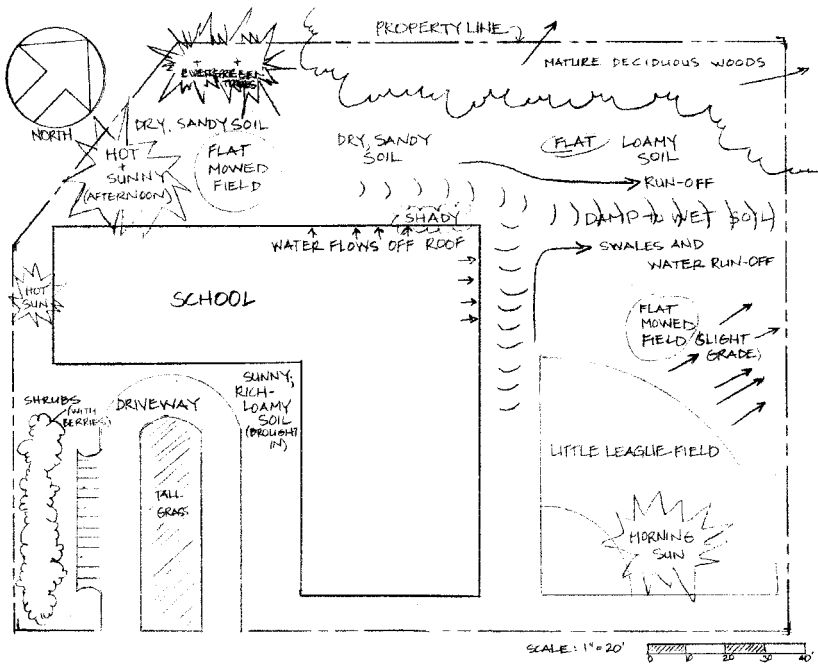 PROPERTY LINE
MATURE DECIDUOUS WOODS
EVERGREEN
TREES
NORTH
DRY, SANDY SOIL
HOT
+
SUNNY
(AFTERNOON)
FLAT
MOWED
FIELD
DRY, SANDY
SOIL
FLAT LOAMY
SOIL
RUN-OFF
SHADY
DAMP to WET SOIL
WATER FLOWS OFF ROOF
SWALES AND
WATER RUN-OFF
HOT
SUN
SCHOOL
FLAT
MOWED
FIELD (SLIGHT
GRADE)
SHRUBS
(WITH
BERRIES)
DRIVEWAY
SUNNY,
RICH-
LOAMY
SOIL
(BROUGHT
IN)
TALL
GRASS
LITTLE LEAGUE FIELD
MORNING
SUN
SCALE: 1"=20'
0 10 20 30 40'